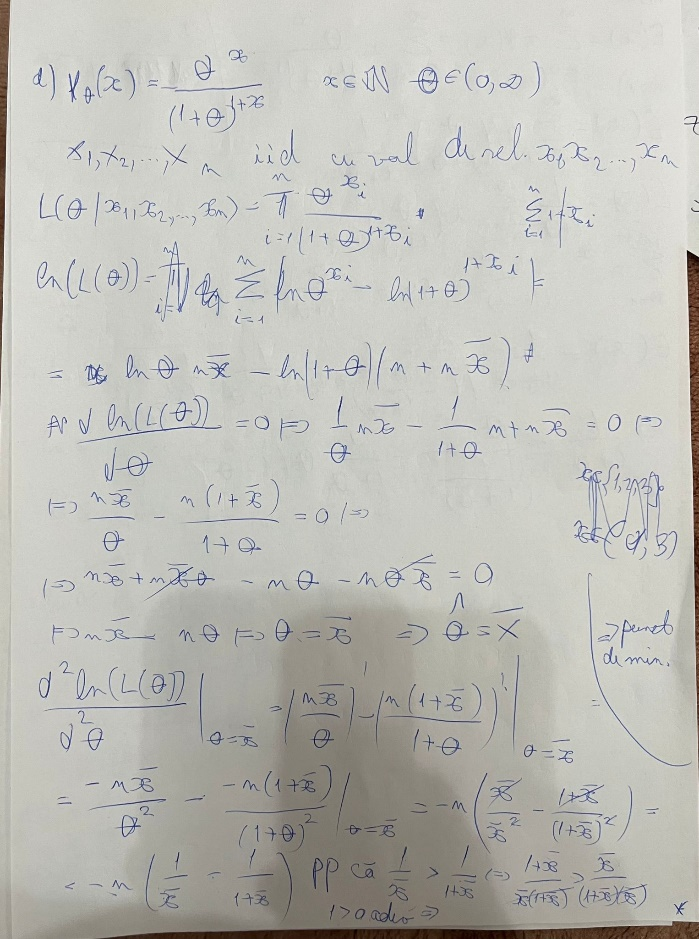 d) p_θ(x) = θ^x / (1+θ)^{1+x}   x∈ℕ   θ∈(0,∞)
x_1, x_2, ..., x_n iid cu val de sel. x_1, x_2, ..., x_n
L(θ|x_1, x_2, ..., x_n) = ∏_{i=1}^{n} θ^{x_i} / (1+θ)^{1+x_i}   ∑_{i=1}^{n} 1+x_i
ln(L(θ)) = ∑_{i=1}^{n} (ln θ^{x_i} - ln(1+θ)^{1+x_i}) =
= ln θ n x̄ - ln(1+θ)(n + n x̄)
d ln(L(θ)) / dθ = 0 ⇔ 1/θ n x̄ - 1/(1+θ) n + n x̄ = 0 ⇔
⇔ n x̄ / θ - n(1+x̄) / (1+θ) = 0 ⇔
⇔ n x̄ + n x̄ θ - nθ - nθ x̄ = 0
⇔ n x̄ - nθ ⇔ θ = x̄ ⇒ θ̂ = X̄
⇒ punct
de min.
d² ln(L(θ)) / d²θ |_{θ=x̄} = (n x̄ / θ)' - (n(1+x̄) / (1+θ))' |_{θ=x̄} =
= -n x̄ / θ² - -n(1+x̄) / (1+θ)² |_{θ=x̄} = -n (x̄ / x̄² - (1+x̄) / (1+x̄)²) =
= -n (1/x̄ - 1/(1+x̄)) PP că 1/x̄ > 1/(1+x̄) ⇔ (1+x̄) / (x̄(1+x̄)) > x̄ / ((1+x̄)(x̄))
1>0 adev ⇒   *